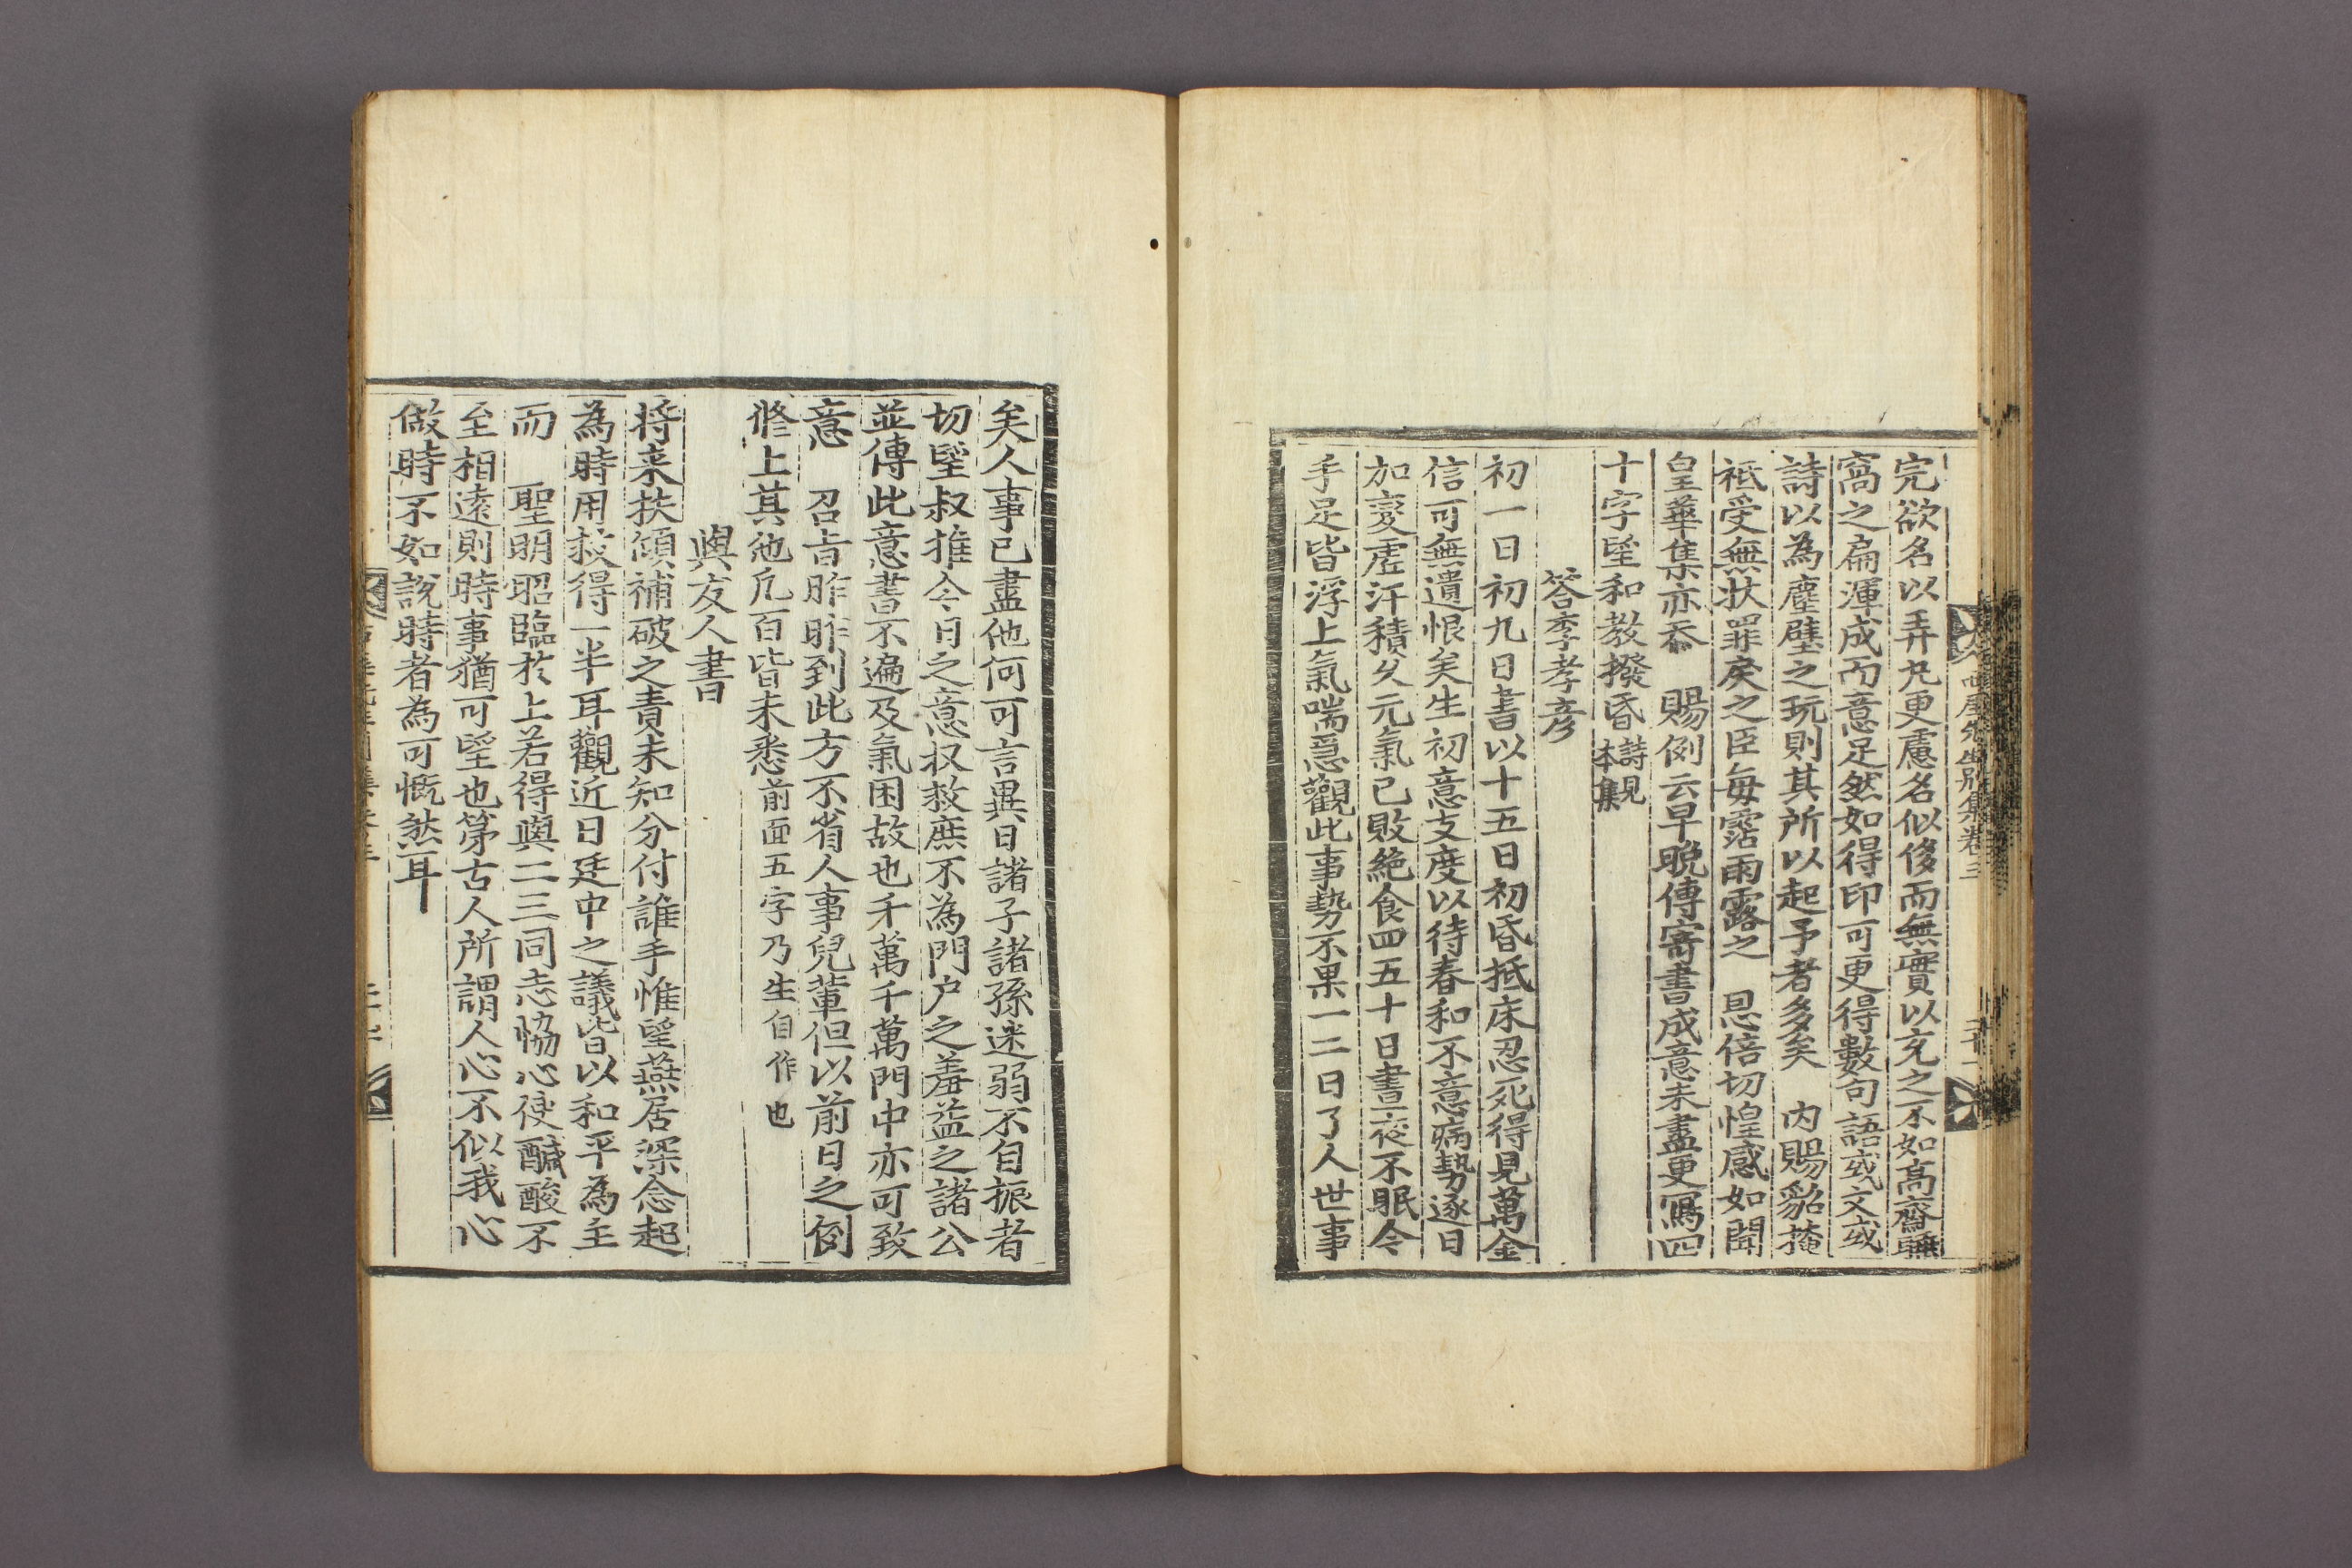 完欲名以弄丸更慮名似侈而無實以充之不如高齋聽
窩之扁渾成而意足然如得印可更得數句語或文或
詩以為塵壁之玩則其所以起予者多矣 內賜貂掩
祗受無狀罪戾之臣每霑雨露之 恩倍切惶感如聞
皇華集亦忝 賜例云早晚傳寄書成意未盡更寫四
十字望和教撥昏詩見本集
答李孝彦
初一日初九日書以十五日初昏抵床忍死得見萬金
信可無遺恨矣生初意支度以待春和不意病勢逐日
加變虛汗積久元氣已敗絶食四五十日晝夜不眠今
手足皆浮上氣喘惡觀此事勢不果一二日了人世事
矣人事已盡他何可言異日諸子諸孫迷弱不自振者
切望叔推今日之意扠救庶不為門户之羞益之諸公
並傳此意書不遍及氣困故也千萬千萬門中亦可致
意 召旨昨昨到此方不省人事兒輩但以前日之例
修上其他凡百皆未悉前面五字乃生自作也
與友人書
将来扶傾補破之責未知分付誰手惟望燕居深念起
為時用救得一半耳觀近日廷中之議皆以和平為主
而 聖明昭臨於上若得與二三同志恊心使醎酸不
至相遠則時事猶可望也第古人所謂人心不似我心
做時不如說時者為可慨然耳